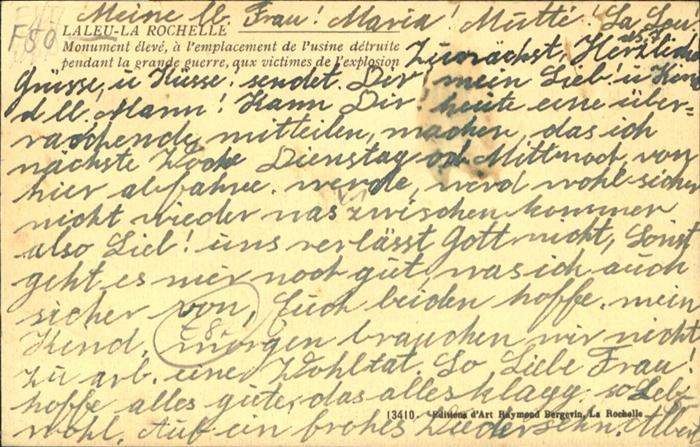 Meine ll. Frau! Maria! Mutti! La
F50
LALEU-LA ROCHELLE
Monument élevé, à l'emplacement de l'usine détruite
pendant la grande guerre, aux victimes de l'explosion
Zunächst. Herzliche
Grüsse, u Küsse! sendet. Dir, mein Lieb! u
d ll. Mann! Kann Dir! heute eine über-
raschende, mitteilen, machen, das ich
nächste Woche Dienstag od. Mittwoch, von
hier abfahre. werde, werd wohl sicher
nicht wieder was zwischen kommen
also Lieb! uns verlässt Gott nicht, Sonst
geht es mir noch gut, was ich auch
sicher von, Euch beiden hoffe. mein
Kind, morgen brauchen wir nicht
zu arb. eine Wohltat. So Liebe Frau!
hoffe alles gute, das alles klapp. so Leb-
13410. Editions d'Art Raymond Bergevin, La Rochelle
wohl. Auf ein frohes Wiedersehn.